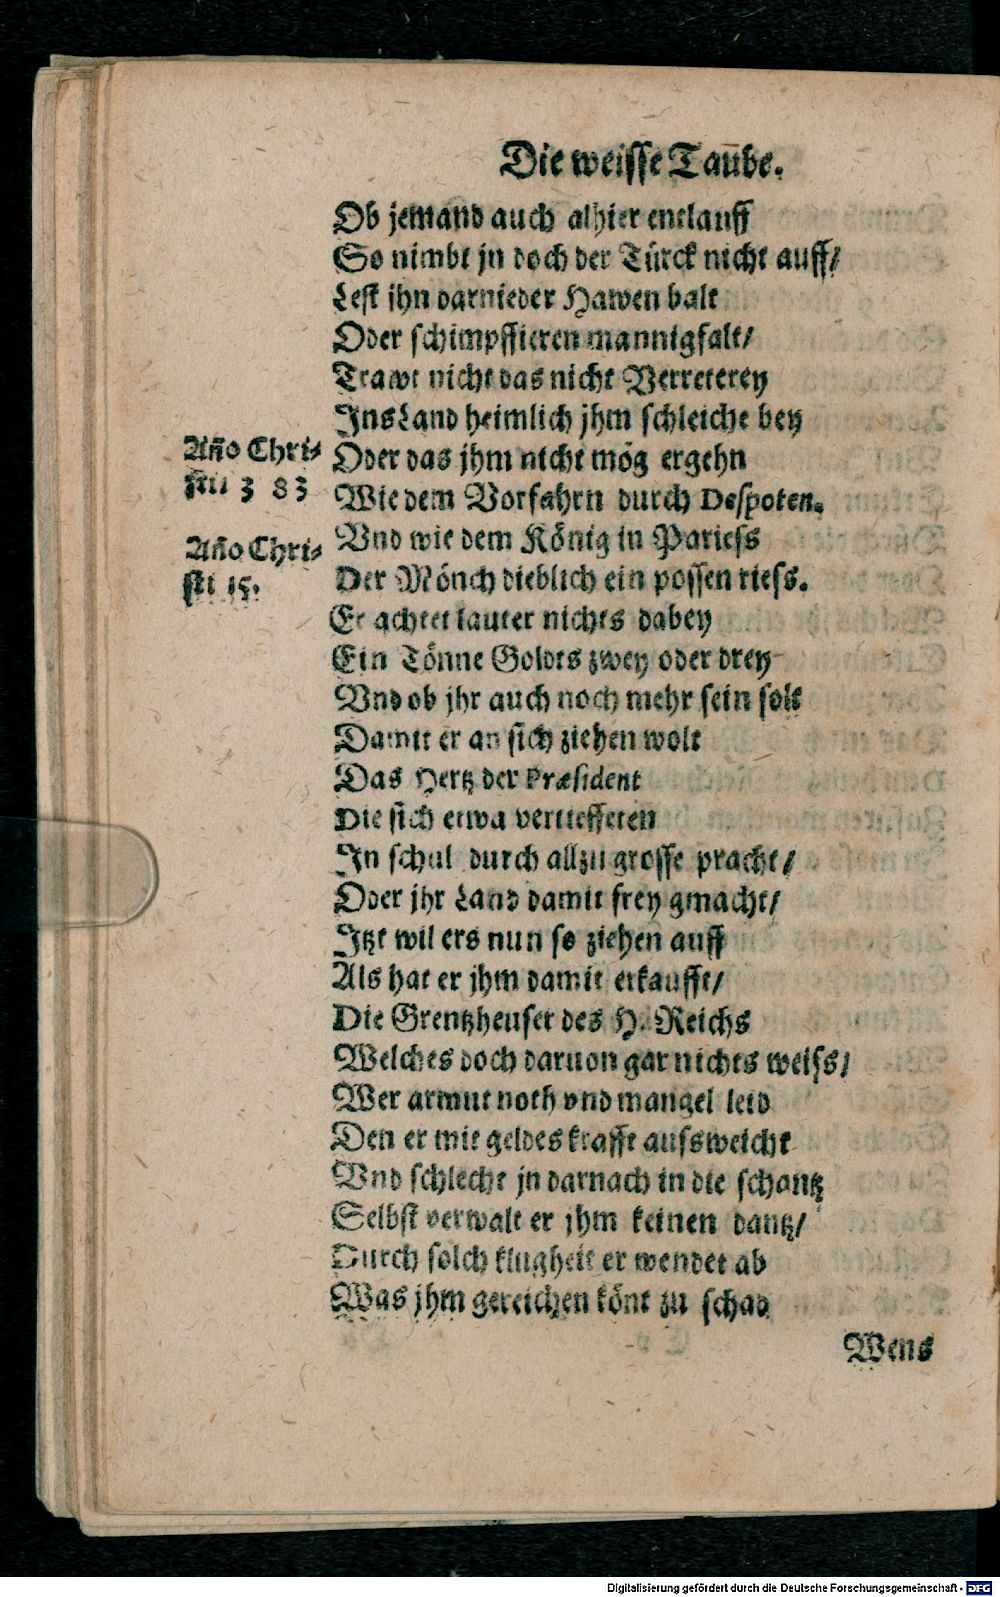 Die weisse Taube.
Ob jemand auch alhier entlauff
So nimbt jn doch der Türck nicht auff/
Lest jhn darnieder Hawen balt
Oder schimpffieren mannigfalt/
Trawt nicht das nicht Verreterey
Ins Land heimlich jhm schleiche bey
Año Chri-
sti 1383
Oder das jhm nicht mög ergehn
Wie dem Vorfahrn durch Despoten.
Año Chri-
sti 15.
Vnd wie dem König in Pariess
Der Mönch dieblich ein possen riess.
Er achtet lauter nichts dabey
Ein Tönne Goldts zwey oder drey
Vnd ob jhr auch noch mehr sein solt
Damit er an sich ziehen wolt
Das Hertz der Præsident
Die sich etwa vertieffeten
In schul durch allzu grosse pracht/
Oder jhr Land damit frey gmacht/
Itzt wil ers nun so ziehen auff
Als hat er jhm damit erkaufft/
Die Grentzheuser des H. Reichs
Welches doch daruon gar nichts weiss/
Wer armut noth vnd mangel leid
Den er mit geldes krafft aufsweicht
Vnd schlecht jn darnach in die schantz
Selbst verwalt er jhm keinen dantz/
Durch solch klugheit er wendet ab
Was jhm gereichen könt zu schad
Wens
Digitalisierung gefördert durch die Deutsche Forschungsgemeinschaft - DFG